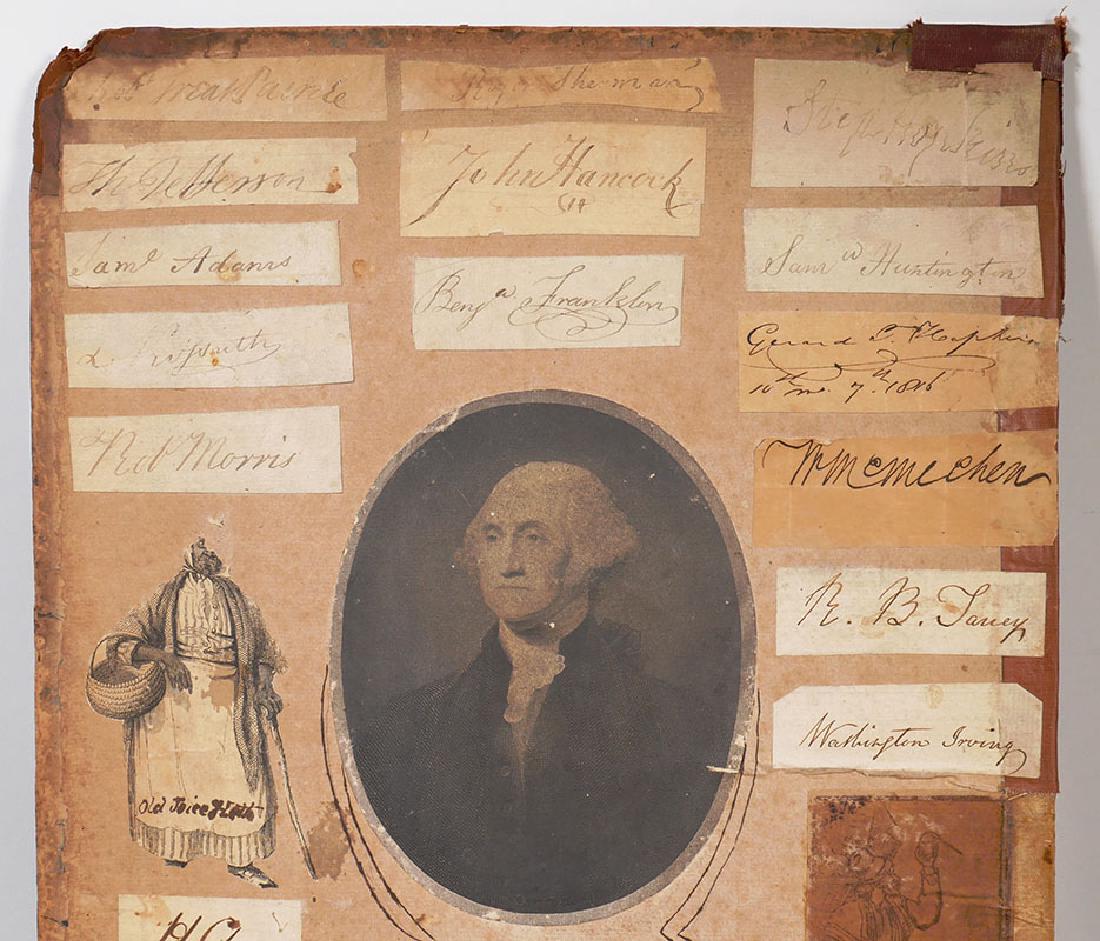 Robt Treat Paine
Th Jefferson
Saml Adams
Rob Morris
Old Joice Heth
Roger Sherman
John Hancock
Benja Franklin
Step Hopkins
Saml Huntington
Gerard T. Hopkins
10th mo. 7th 1816
Wm McMechen
R. B. Taney
Washington Irving